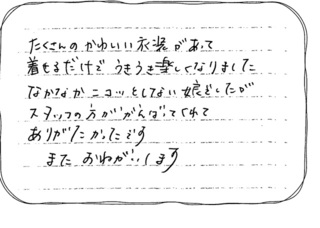 たくさんの かわいい衣装があって
着せるだけで うきうき楽しくなりました
なかなか ニコッとしてない娘でしたが
スタッフの方が がんばってくれて
ありがたかったです
また おねがいします